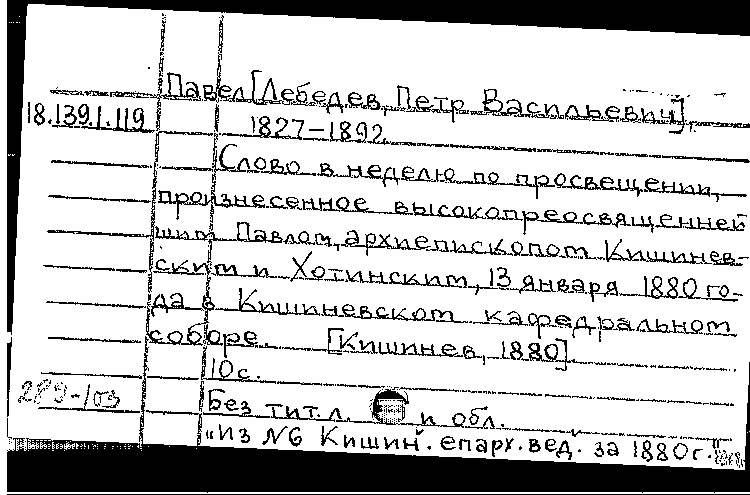 Павел [Лебедев, Петр Васильевич],
18.139.1.119
1827-1892.
Слово в неделю по просвещении,
произнесенное высокопреосвященней
шим Павлом, архиепископом Кишинев-
ским и Хотинским, 13 января 1880 го-
да в Кишиневском кафедральном
соборе. [Кишинев, 1880].
10с.
289-103
Без тит. л. и обл.
"Из №6 Кишин. епарх. вед. за 1880г."